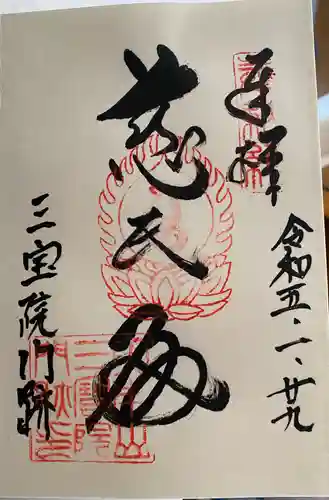 奉拝
令和五・一・廿九
慈氏殿
三宝院門跡